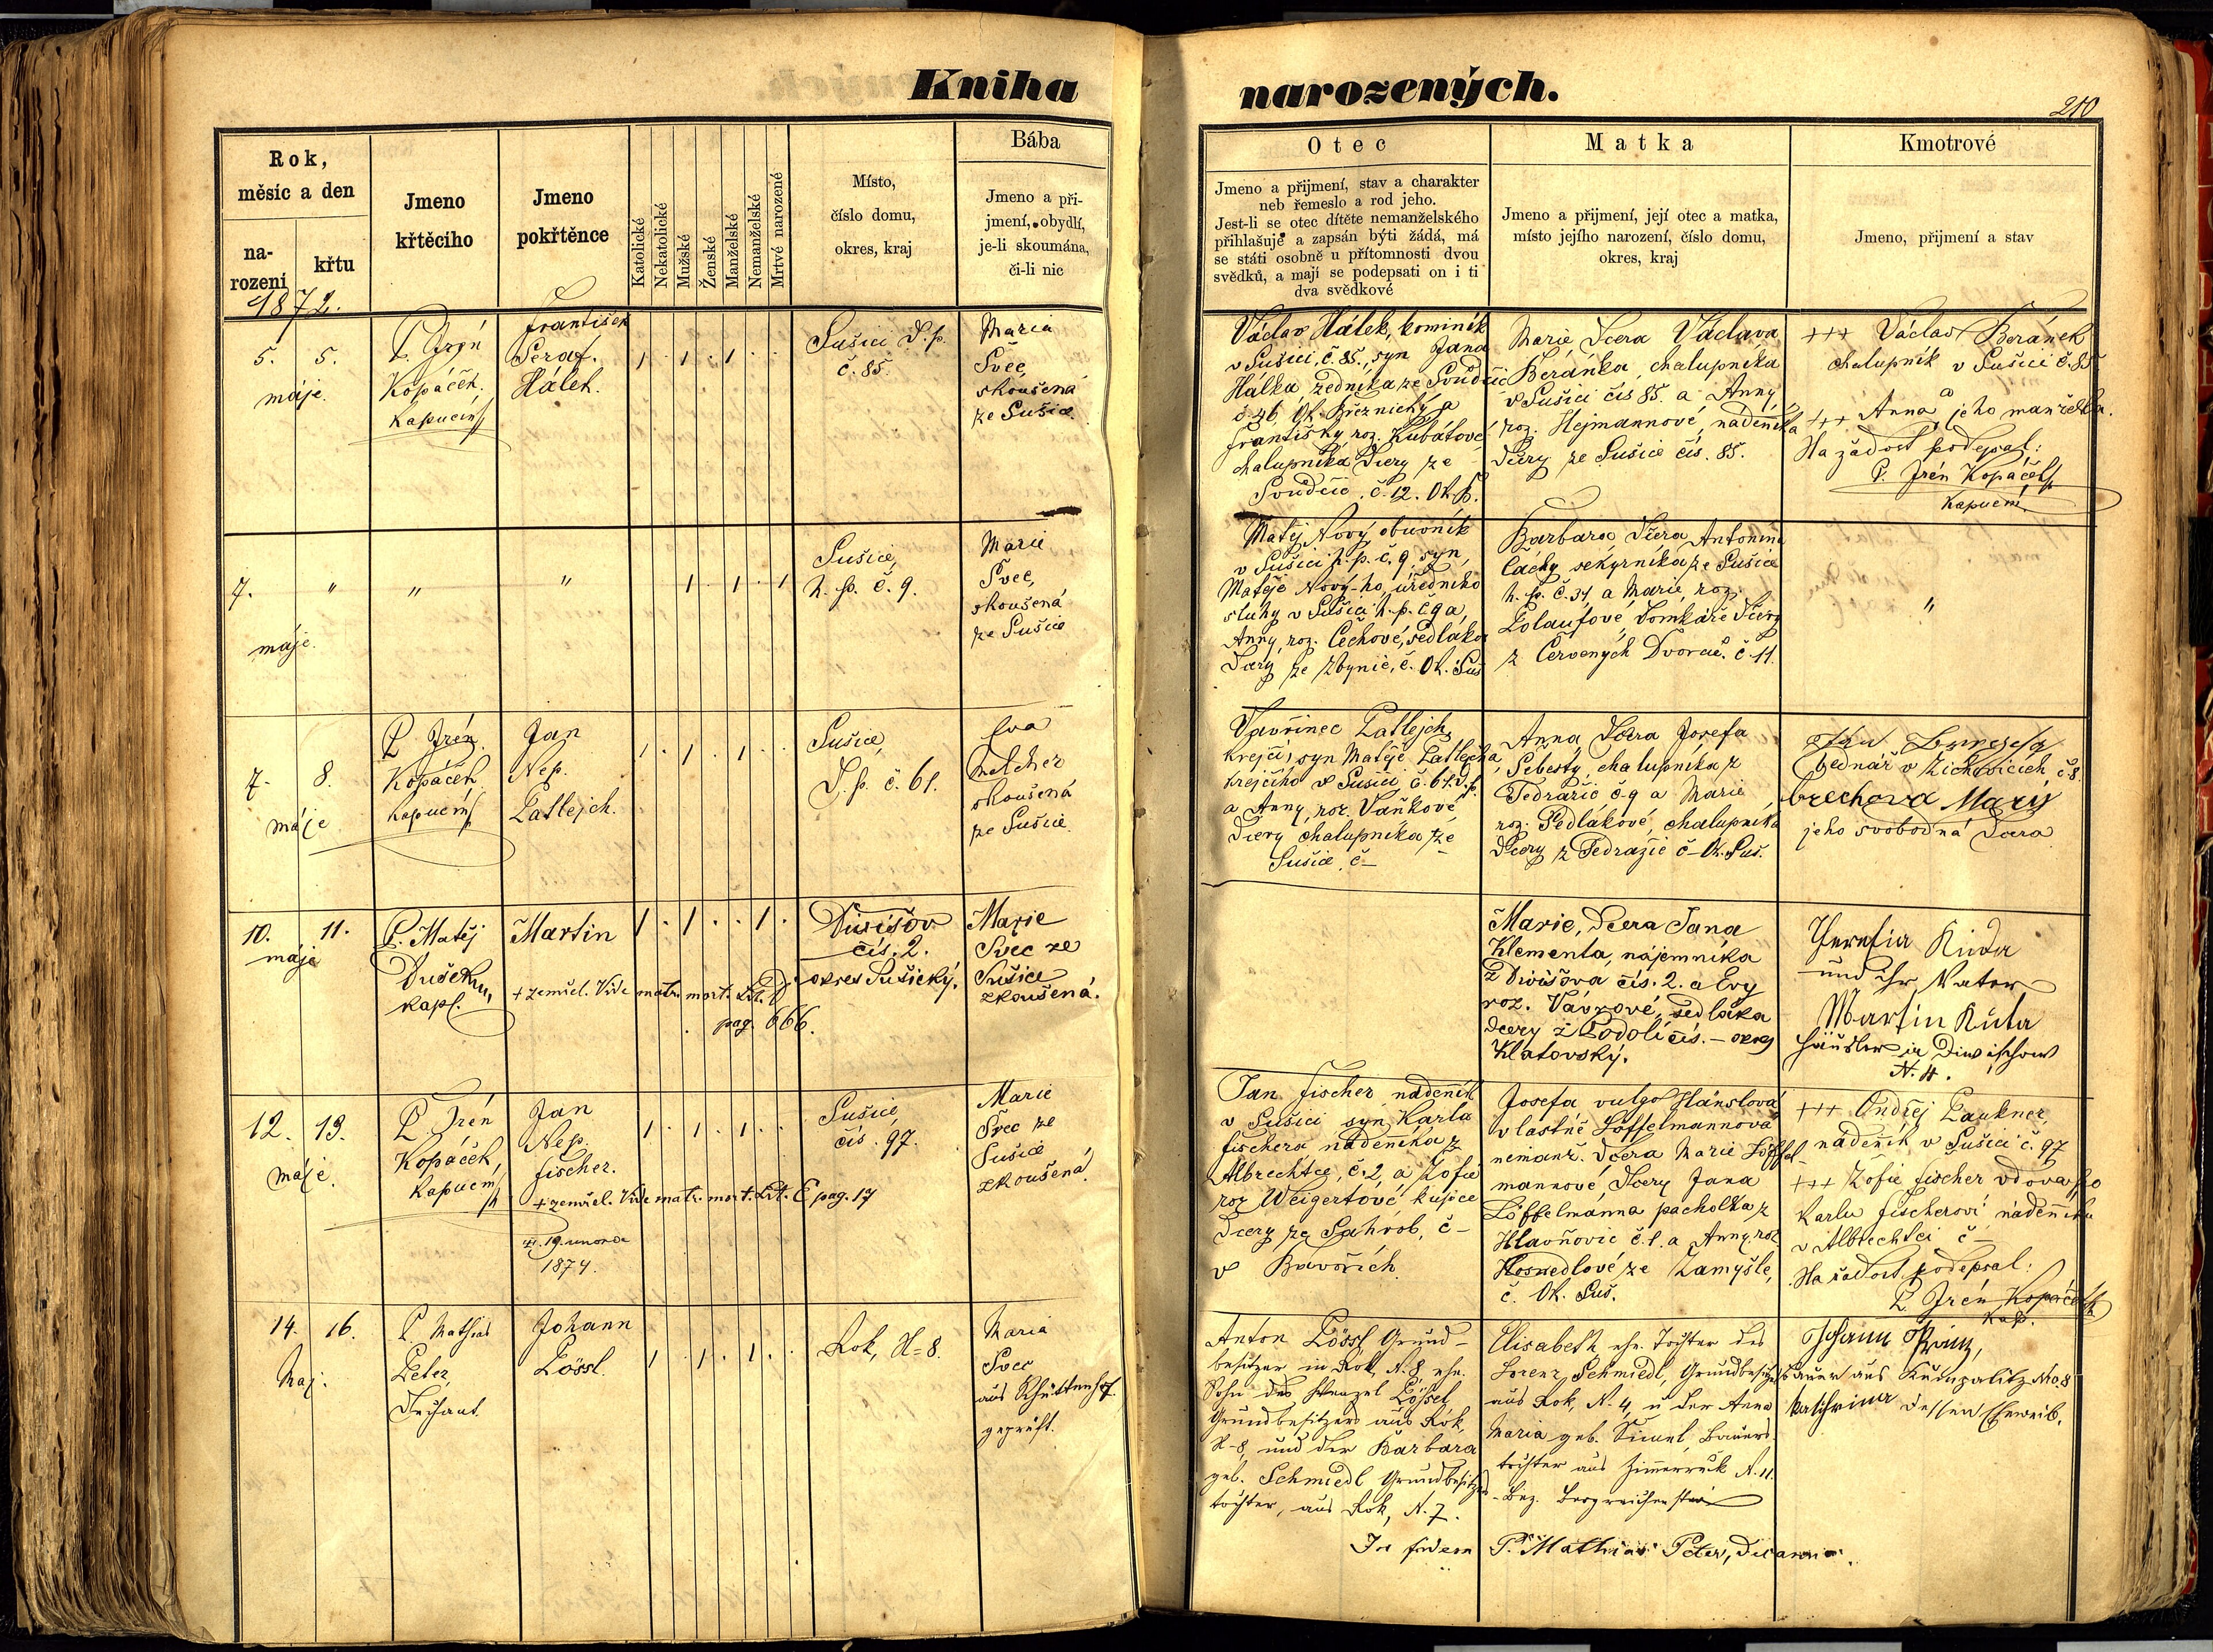 Kniha narozených.
210
Rok,
měsíc a den
na-
rození
křtu
Jmeno
křtěcího
Jmeno
pokřtěnce
Katolické
Nekatolické
Mužské
Ženské
Manželské
Nemanželské
Mrtvé narozené
Místo,
číslo domu,
okres, kraj
Bába
Jmeno a pří-
jmení, obydlí,
je-li skoumána,
či-li nic
Otec
Jmeno a přijmení, stav a charakter
neb řemeslo a rod jeho.
Jest-li se otec dítěte nemanželského
přihlašuje a zapsán býti žádá, má
se státi osobně u přítomnosti dvou
svědků, a mají se podepsati on i ti
dva svědkové
Matka
Jmeno a přijmení, její otec a matka,
místo jejího narození, číslo domu,
okres, kraj
Kmotrové
Jmeno, přijmení a stav
1872.
5. 5.
máje.
P. Irén
Kopáček,
Kapucín
František
Seraf.
Hálek.
1 . 1 . 1 . .
Sušici D. p.
č. 85.
Maria
Švec,
skoušená
ze Sušice
Václav Hálek, kominík
v Sušici, č. 85., syn Jana
Halka, zedníka ze Soudčic
č. 26, Ok. Březnický a
Františky, roz. Kubátové
chalupníka dcery ze
Soudčic. č. 12. Ok. B.
Marie, dcera Václava
Beránka, chalupníka
v Sušici čís 85. a Anny,
roz. Hejmannové, nádeníka
dcery ze Sušice čís. 85.
+++ Václav Beránek
chalupník v Sušici č. 85
a
+++ Anna jeho manželka.
Na žádost podepsal:
P. Irén Kopáček
Kapucín.
7. " " "
máje.
1 . 1 . 1
Sušice,
h. p. č. 9.
Marie
Švec,
skoušená
ze Sušice
Matěj Nový, obuvník
v Sušici h. p. č. 9, syn,
Matěje Nový-ho, úředního
sluhy v Sušici h. p. č. 9 a,
Anny, roz. Čechové, sedláka
dcery ze Zbynic, č. Ok. Suš
Barbara, dcera Antonína
Čáchy sekyrníka ze Sušice
h. p. č. 31, a Marie, roz.
Lolaufové, domkáře dcery
z Červených Dvorců. č. 11.
"
7. 8.
máje
P. Irén
Kopáček
kapucín
Jan
Nep.
Latlejch.
1 . 1 . 1 . .
Sušice,
D. p. č. 61.
Eva
Melcher
skoušená
ze Sušice.
Vavřinec Latlejch,
krejčí, syn Matěje Latlejcha,
krejčího v Sušici č. 61. D. p.
a Anny, roz. Vaňkové
dcery chalupníka ze
Sušice, č –
Anna dcera Josefa
Šebesty, chalupníka z
Tedražic č. 9 a Marie,
roz. Sedlákové, chalupníka
dcery z Tedražic č – Ok. Suš.
bednář v Žichovicích č. 8
Mary
jeho svobodná dcera
10. 11.
máje
P. Matěj
Dušek
kapl.
Martin
+ zemřel. Vide matr. mort. Lit. D
pag. 666.
1 . 1 . . 1 .
Divišov
čís. 2.
okres Sušický.
Marie
Švec ze
Sušice
zkoušená.
Marie, dcera Jana
Klementa, nájemníka
z Divišova čís. 2. a Evy
roz. Vávrové, sedláka
dcery z Podolí čís. – okres
Klatovský.
und ihr Vater
Martin Kůta
Häusler in Diwischow
N. 4.
12. 13.
máje.
P. Irén
Kopáček,
Kapucín
Jan
Nep.
Fischer.
+ zemřel. Vide matr. mort. Lit. E pag. 17
19. února
1874.
1 . 1 . 1 . .
Sušice,
čís. 97.
Marie
Švec ze
Sušice
zkoušená.
Jan Fischer nádeník
v Sušici syn Karla
Fischera nádeníka z
Albrechtce, č. 2, a Žofie
roz. Weigertové, kusiče
dcery ze , č –
v Bavořích.
Josefa vulgo Hánslová
vlastně Löffelmannova
nemanž. dcera Marie Löffel-
mannové, dcery Jana
Löffelmanna pacholka z
Hlavňovic č. 1. a Anny, roz
Hosnedlové ze Zamyšle,
č. Ok. Suš.
+++ Ondřej Paukner,
nádeník v Sušici č. 97
+++ Žofie Fischer vdova po
Karlu Fischerovi nádeníku
v Albrechtci č –
Na žádost podepsal:
P. Irén Kopáček
Kap.
14. 16.
Maj.
P. Mathias
Peter,
Dechant.
Johann
Lössl.
1 . 1 . 1 . .
Rok, N= 8.
Maria
Svec
aus Schüttenhof.
geprüft.
Anton Lössl, Grund-
besitzer in Rok, N. 8, ehe.
Sohn des Wenzel Lössel,
Grundbesitzers aus Rok,
N-8, und der Barbara
geb. Schmiedl Grundbesitzers-
tochter, aus Rok, N. 7.
Elisabeth ehe. Tochter des
Lorenz Schmiedl, Grundbesitzers
aus Rok, N. 4, u der Anna
Maria geb. , Bauers-
tochter aus N. 11.
Bez. Bergreichenstein
Johann
Bauer aus Kumpatitz No. 8
Katharina dessen Eheweib.
In fidem P. Mathias Peter, Decanus.